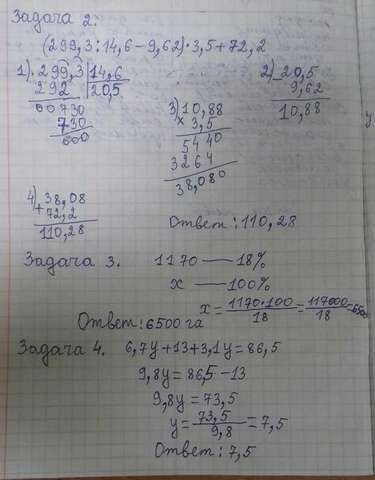 Задача 2.
(299,3:14,6-9,62)·3,5+72,2
1) 299,3 | 14,6
292 | 20,5
00730
730
000
2) 20,5
9,62
10,88
3) 10,88
× 3,5
5440
3264
38,080
4) 38,08
+ 72,2
110,28
Ответ: 110,28
Задача 3. 1170 — 18%
x — 100%
x = 1170·100/18 = 117000/18 = 6500
Ответ: 6500 га
Задача 4. 6,7y+13+3,1y=86,5
9,8y=86,5-13
9,8y=73,5
y=73,5/9,8=7,5
Ответ: 7,5